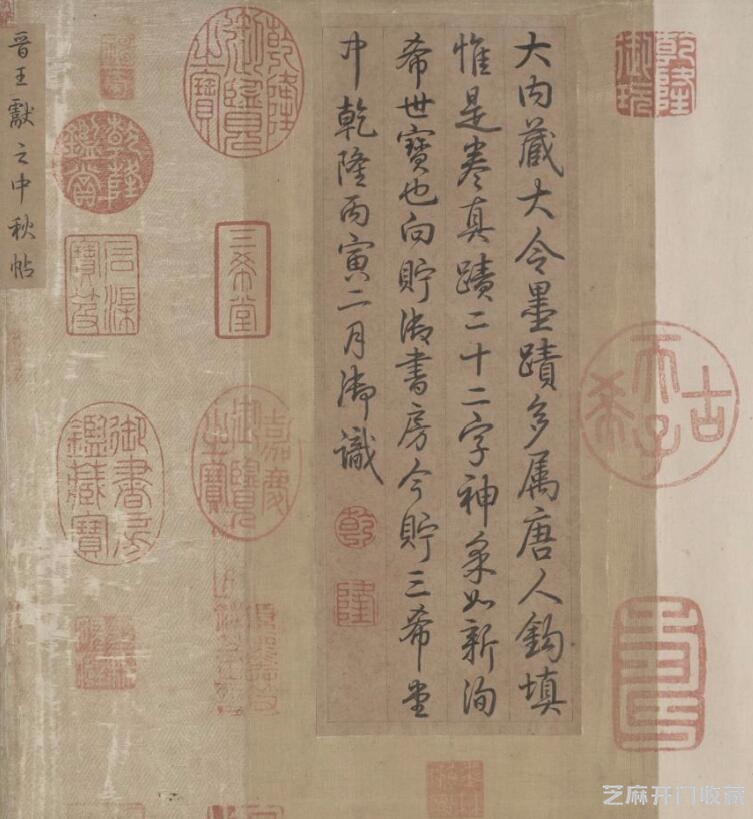 乾隆御玩
古希天子
壽
大內藏大令墨蹟多屬唐人鉤填
惟是卷真蹟二十二字神采如新洵
希世寶也向貯御書房今貯三希堂
中乾隆丙寅二月御識
乾
隆
乾隆御覽之寶
三希堂
嘉慶御覽之寶
乾隆鑑賞
石渠寶笈
御書房鑑藏寶
晉王獻之中秋帖
芝麻开门收藏